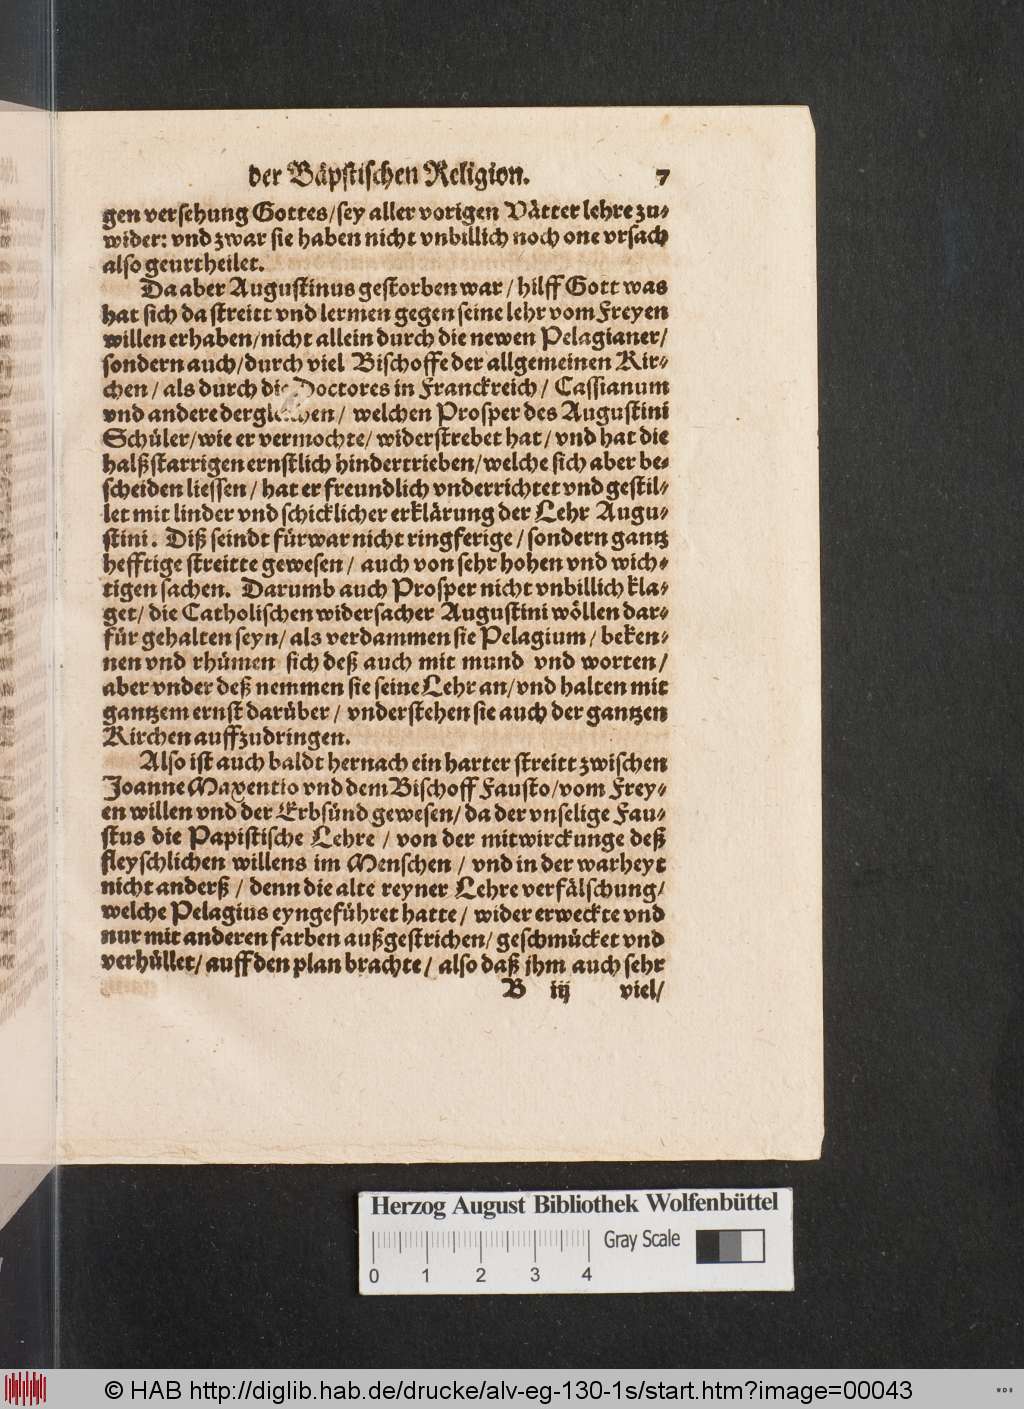 der Bäpstischen Religion. 7
gen versehung Gottes/sey aller vorigen Vätter lehre zu⸗
wider: vnd zwar sie haben nicht vnbillich noch one vrsach
also geurtheilet.
Da aber Augustinus gestorben war / hilff Gott was
hat sich da streitt vnd lermen gegen seine lehr vom Freyen
willen erhaben/nicht allein durch die newen Pelagianer/
sondern auch/durch viel Bischoffe der allgemeinen Kir⸗
chen / als durch die Doctores in Franckreich / Cassianum
vnd andere dergleichen / welchen Prosper des Augustini
Schüler/wie er vermochte/ widerstrebet hat / vnd hat die
halßstarrigen ernstlich hindertrieben/welche sich aber be⸗
scheiden liessen / hat er freundlich vnderrichtet vnd gestil⸗
let mit linder vnd schicklicher erklärung der Lehr Augu⸗
stini. Diß seindt fürwar nicht ringferige / sondern gantz
hefftige streitte gewesen / auch von sehr hohen vnd wich⸗
tigen sachen. Darumb auch Prosper nicht vnbillich kla⸗
get/ die Catholischen widersacher Augustini wöllen dar⸗
für gehalten seyn/ als verdammen sie Pelagium / beken⸗
nen vnd rhümen sich deß auch mit mund vnd worten/
aber vnder deß nemmen sie seine Lehr an/vnd halten mit
gantzem ernst darüber / vnderstehen sie auch der gantzen
Kirchen auffzudringen.
Also ist auch baldt hernach ein harter streitt zwischen
Joanne Maxentio vnd dem Bischoff Fausto/vom Frey⸗
en willen vnd der Erbsünd gewesen/ da der vnselige Fau⸗
stus die Papistische Lehre / von der mitwirckunge deß
fleyschlichen willens im Menschen / vnd in der warheyt
nicht anderß / denn die alte reyner Lehre verfälschung/
welche Pelagius eyngeführet hatte / wider erweckte vnd
nur mit anderen farben außgestrichen/ geschmücket vnd
verhüllet/ auff den plan brachte / also daß jhm auch sehr
B iij viel/
Herzog August Bibliothek Wolfenbüttel
Gray Scale
0 1 2 3 4
© HAB http://diglib.hab.de/drucke/alv-eg-130-1s/start.htm?image=00043